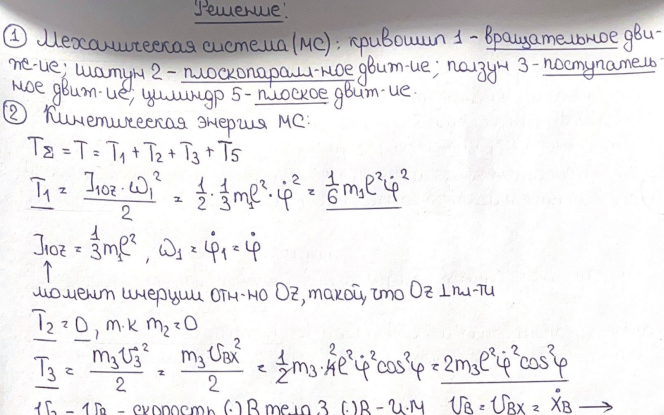 Решение:
① Механическая система (МС): кривошип 1 - вращательное дви-
ж-ие; шатун 2 - плоскопарал-ное двит-ие; ползун 3 - поступатель-
ное двит-ие, цилиндр 5 - плоское двит-ие.
② Кинетическая энергия МС:
T_Σ = T = T₁ + T₂ + T₃ + T₅
T₁ = J₁oz · ω₁² / 2 = 1/2 · 1/3 m₁l² · φ̇² = 1/6 m₁l²φ̇²
J₁oz = 1/3 m₁l², ω₁ = φ̇₁ = φ̇
↑
момент инерции отн-но Oz, такой, что Oz ⊥ пл-ти
T₂ = 0, т.к m₂ = 0
T₃ = m₃V₃² / 2 = m₃V_BX² / 2 = 1/2 m₃ · 4 2 l²φ̇²cos²φ = 2m₃l²φ̇²cos²φ
- скорость (·) B тела 3 (·) B - ц.м V_B = V_BX = ẋ_B →